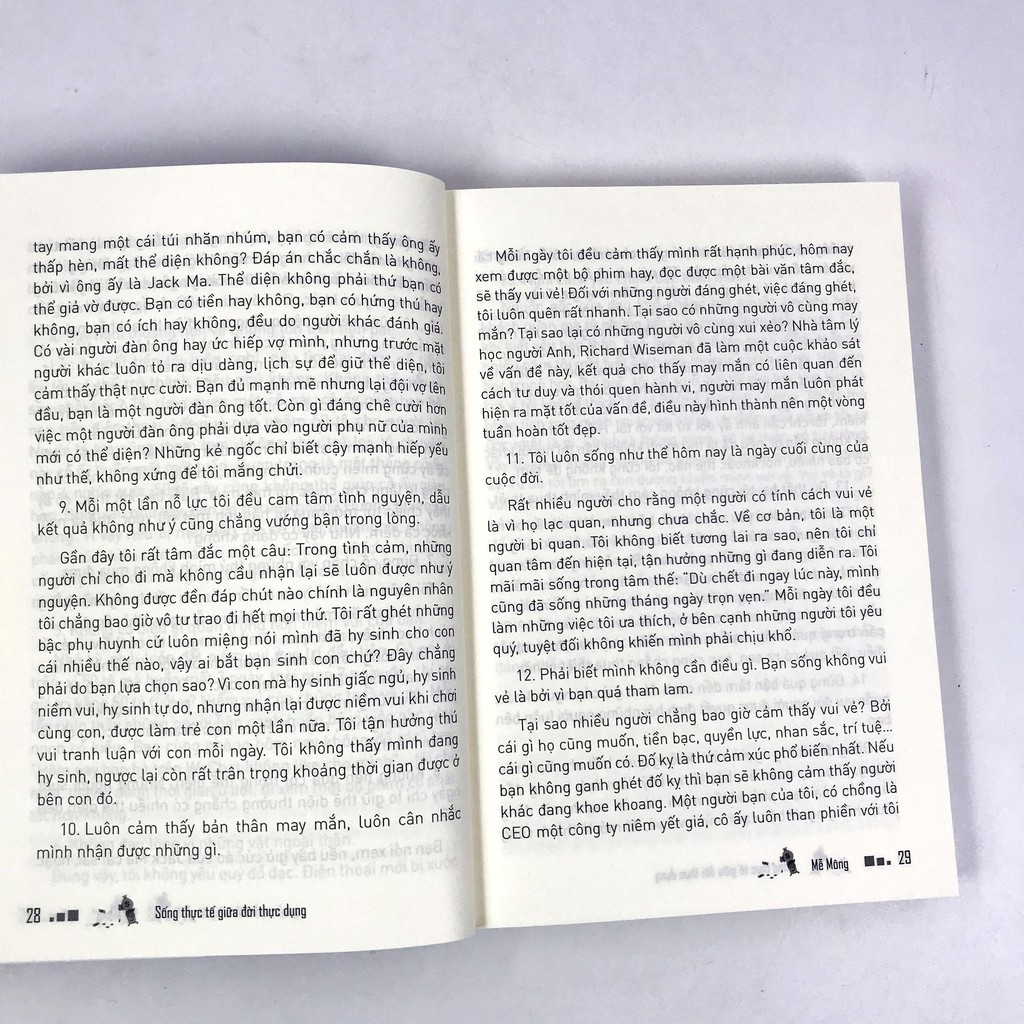 tay mang một cái túi nhăn nhúm, bạn có cảm thấy ông ấy
thấp hèn, mất thể diện không? Đáp án chắc chắn là không,
bởi vì ông ấy là Jack Ma. Thể diện không phải thứ bạn có
thể giả vờ được. Bạn có tiền hay không, bạn có hứng thú hay
không, bạn có ích hay không, đều do người khác đánh giá.
Có vài người đàn ông hay ức hiếp vợ mình, nhưng trước mặt
người khác luôn tỏ ra dịu dàng, lịch sự để giữ thể diện, tôi
cảm thấy thật nực cười. Bạn đủ mạnh mẽ nhưng lại đội vợ lên
đầu, bạn là một người đàn ông tốt. Còn gì đáng chê cười hơn
việc một người đàn ông phải dựa vào người phụ nữ của mình
mới có thể diện? Những kẻ ngốc chỉ biết cậy mạnh hiếp yếu
như thế, không xứng để tôi mắng chửi.
9. Mỗi một lần nỗ lực tôi đều cam tâm tình nguyện, dẫu
kết quả không như ý cũng chẳng vướng bận trong lòng.
Gần đây tôi rất tâm đắc một câu: Trong tình cảm, những
người chỉ cho đi mà không cầu nhận lại sẽ luôn được như ý
nguyện. Không được đền đáp chút nào chính là nguyên nhân
tôi chẳng bao giờ vô tư trao đi hết mọi thứ. Tôi rất ghét những
bậc phụ huynh cứ luôn miệng nói mình đã hy sinh cho con
cái nhiều thế nào, vậy ai bắt bạn sinh con chứ? Đây chẳng
phải do bạn lựa chọn sao? Vì con mà hy sinh giấc ngủ, hy sinh
niềm vui, hy sinh tự do, nhưng nhận lại được niềm vui khi chơi
cùng con, được làm trẻ con một lần nữa. Tôi tận hưởng thú
vui tranh luận với con mỗi ngày. Tôi không thấy mình đang
hy sinh, ngược lại còn rất trân trọng khoảng thời gian được ở
bên con đó.
10. Luôn cảm thấy bản thân may mắn, luôn cân nhắc
mình nhận được những gì.
28 Sống thực tế giữa đời thực dụng
Mỗi ngày tôi đều cảm thấy mình rất hạnh phúc, hôm nay
xem được một bộ phim hay, đọc được một bài văn tâm đắc,
sẽ thấy vui vẻ! Đối với những người đáng ghét, việc đáng ghét,
tôi luôn quên rất nhanh. Tại sao có những người vô cùng may
mắn? Tại sao lại có những người vô cùng xui xẻo? Nhà tâm lý
học người Anh, Richard Wiseman đã làm một cuộc khảo sát
về vấn đề này, kết quả cho thấy may mắn có liên quan đến
cách tư duy và thói quen hành vi, người may mắn luôn phát
hiện ra mặt tốt của vấn đề, điều này hình thành nên một vòng
tuần hoàn tốt đẹp.
11. Tôi luôn sống như thể hôm nay là ngày cuối cùng của
cuộc đời.
Rất nhiều người cho rằng một người có tính cách vui vẻ
là vì họ lạc quan, nhưng chưa chắc. Về cơ bản, tôi là một
người bi quan. Tôi không biết tương lai ra sao, nên tôi chỉ
quan tâm đến hiện tại, tận hưởng những gì đang diễn ra. Tôi
mãi mãi sống trong tâm thế: "Dù chết đi ngay lúc này, mình
cũng đã sống những tháng ngày trọn vẹn." Mỗi ngày tôi đều
làm những việc tôi ưa thích, ở bên cạnh những người tôi yêu
quý, tuyệt đối không khiến mình phải chịu khổ.
12. Phải biết mình không cần điều gì. Bạn sống không vui
vẻ là bởi vì bạn quá tham lam.
Tại sao nhiều người chẳng bao giờ cảm thấy vui vẻ? Bởi
cái gì họ cũng muốn, tiền bạc, quyền lực, nhan sắc, trí tuệ...
cái gì cũng muốn có. Đố kỵ là thứ cảm xúc phổ biến nhất. Nếu
bạn không ganh ghét đố kỵ thì bạn sẽ không cảm thấy người
khác đang khoe khoang. Một người bạn của tôi, có chồng là
CEO một công ty niêm yết giá, cô ấy luôn than phiền với tôi
Mễ Mông 29